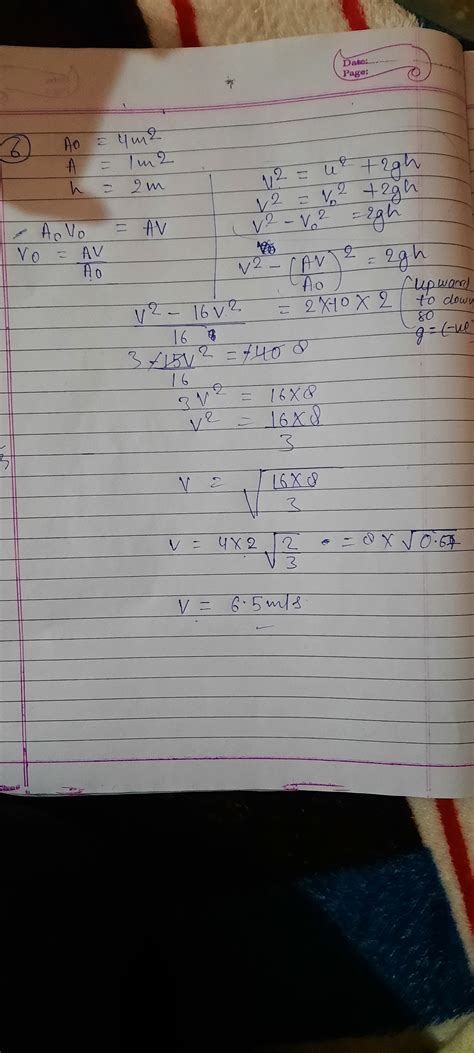 Date:
Page:
6
A₀ = 4m²
A = 1m²
h = 2m
A₀V₀ = AV
V₀ = AV/A₀
V² = u² + 2gh
V² = V₀² + 2gh
V² - V₀² = 2gh
V² - (AV/A₀)² = 2gh
(V² - 16V²)/16 = 2×10×2 (upward to down so g = (-ve)
3 -15V²/16 = -40 8
3V² = 16×8
V² = (16×8)/3
V = √(16×8/3)
V = 4×2 √(2/3) = 8 × √0.67
V = 6.5m/s